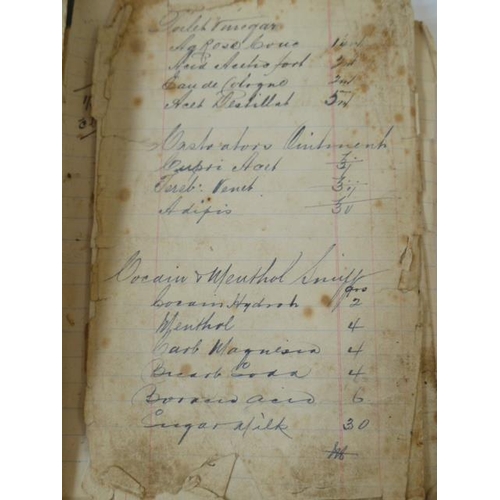 Toilet Vinegar
Aq Rose Conc
Acid Acetic fort
Eau de Cologne
Acet Destillat 5
Castorators Ointment
Cupri Acet
Tereb: Venet
Adipis
Cocain & Menthol Snuff
grs
Cocain Hydroch 2
Menthol 4
Carb Magnesia 4
Bicarb Soda 4
Boracic acid 6
Sugar Milk 30